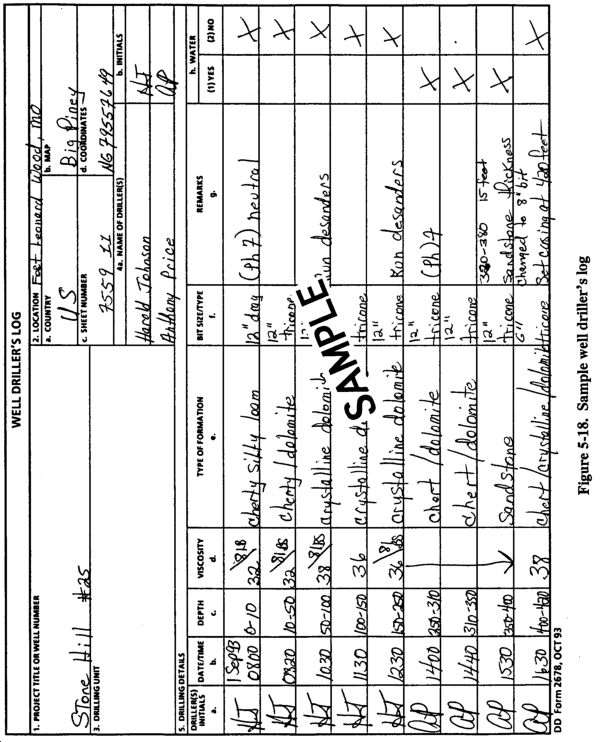 WELL DRILLER'S LOG
1. PROJECT TITLE OR WELL NUMBER
Stone Hill #25
2. LOCATION Foot Leonard Wood, MO
a. COUNTRY
US
b. MAP
Big Piney
3. DRILLING UNIT
c. SHEET NUMBER
7559 II
d. COORDINATES
NG 79557649
4a. NAME OF DRILLER(S)
b. INITIALS
Harold Johnson HJ
Anthony Price AP
5. DRILLING DETAILS
DRILLER(S) INITIALS a.
DATE/TIME b.
DEPTH c.
VISCOSITY d.
TYPE OF FORMATION e.
BIT SIZE/TYPE f.
REMARKS g.
h. WATER
(1) YES
(2) NO
HJ 1 Sep 93 0800 0-10 32 /8 LB cherty silty loam 12" drag (Ph 7) neutral X
HJ 0820 10-50 32 /8 LBS cherty/dolomite 12" tricone X
HJ 1030 50-100 38 /8 LBS crystalline dolomi 12" un desanders X
HJ 1130 100-150 36 crystalline d. tricone X
HJ 1230 150-250 36 /8 LBS crystalline dolomite 12" tricone Run desanders X
AP 1400 250-310 chert/dolomite 12" tricone (Ph) 7 X
AP 1440 310-350 chert/dolomite 12" X
AP 1530 350-400 Sandstone 12" tricone 320-380 15 feet sandstone thickness changed to 8" bit X
AP 1630 400-420 38 chert/crystalline/dolomite 6" tricone Set casing at 420 feet X
SAMPLE
DD Form 2678, OCT 93
Figure 5-18. Sample well driller's log